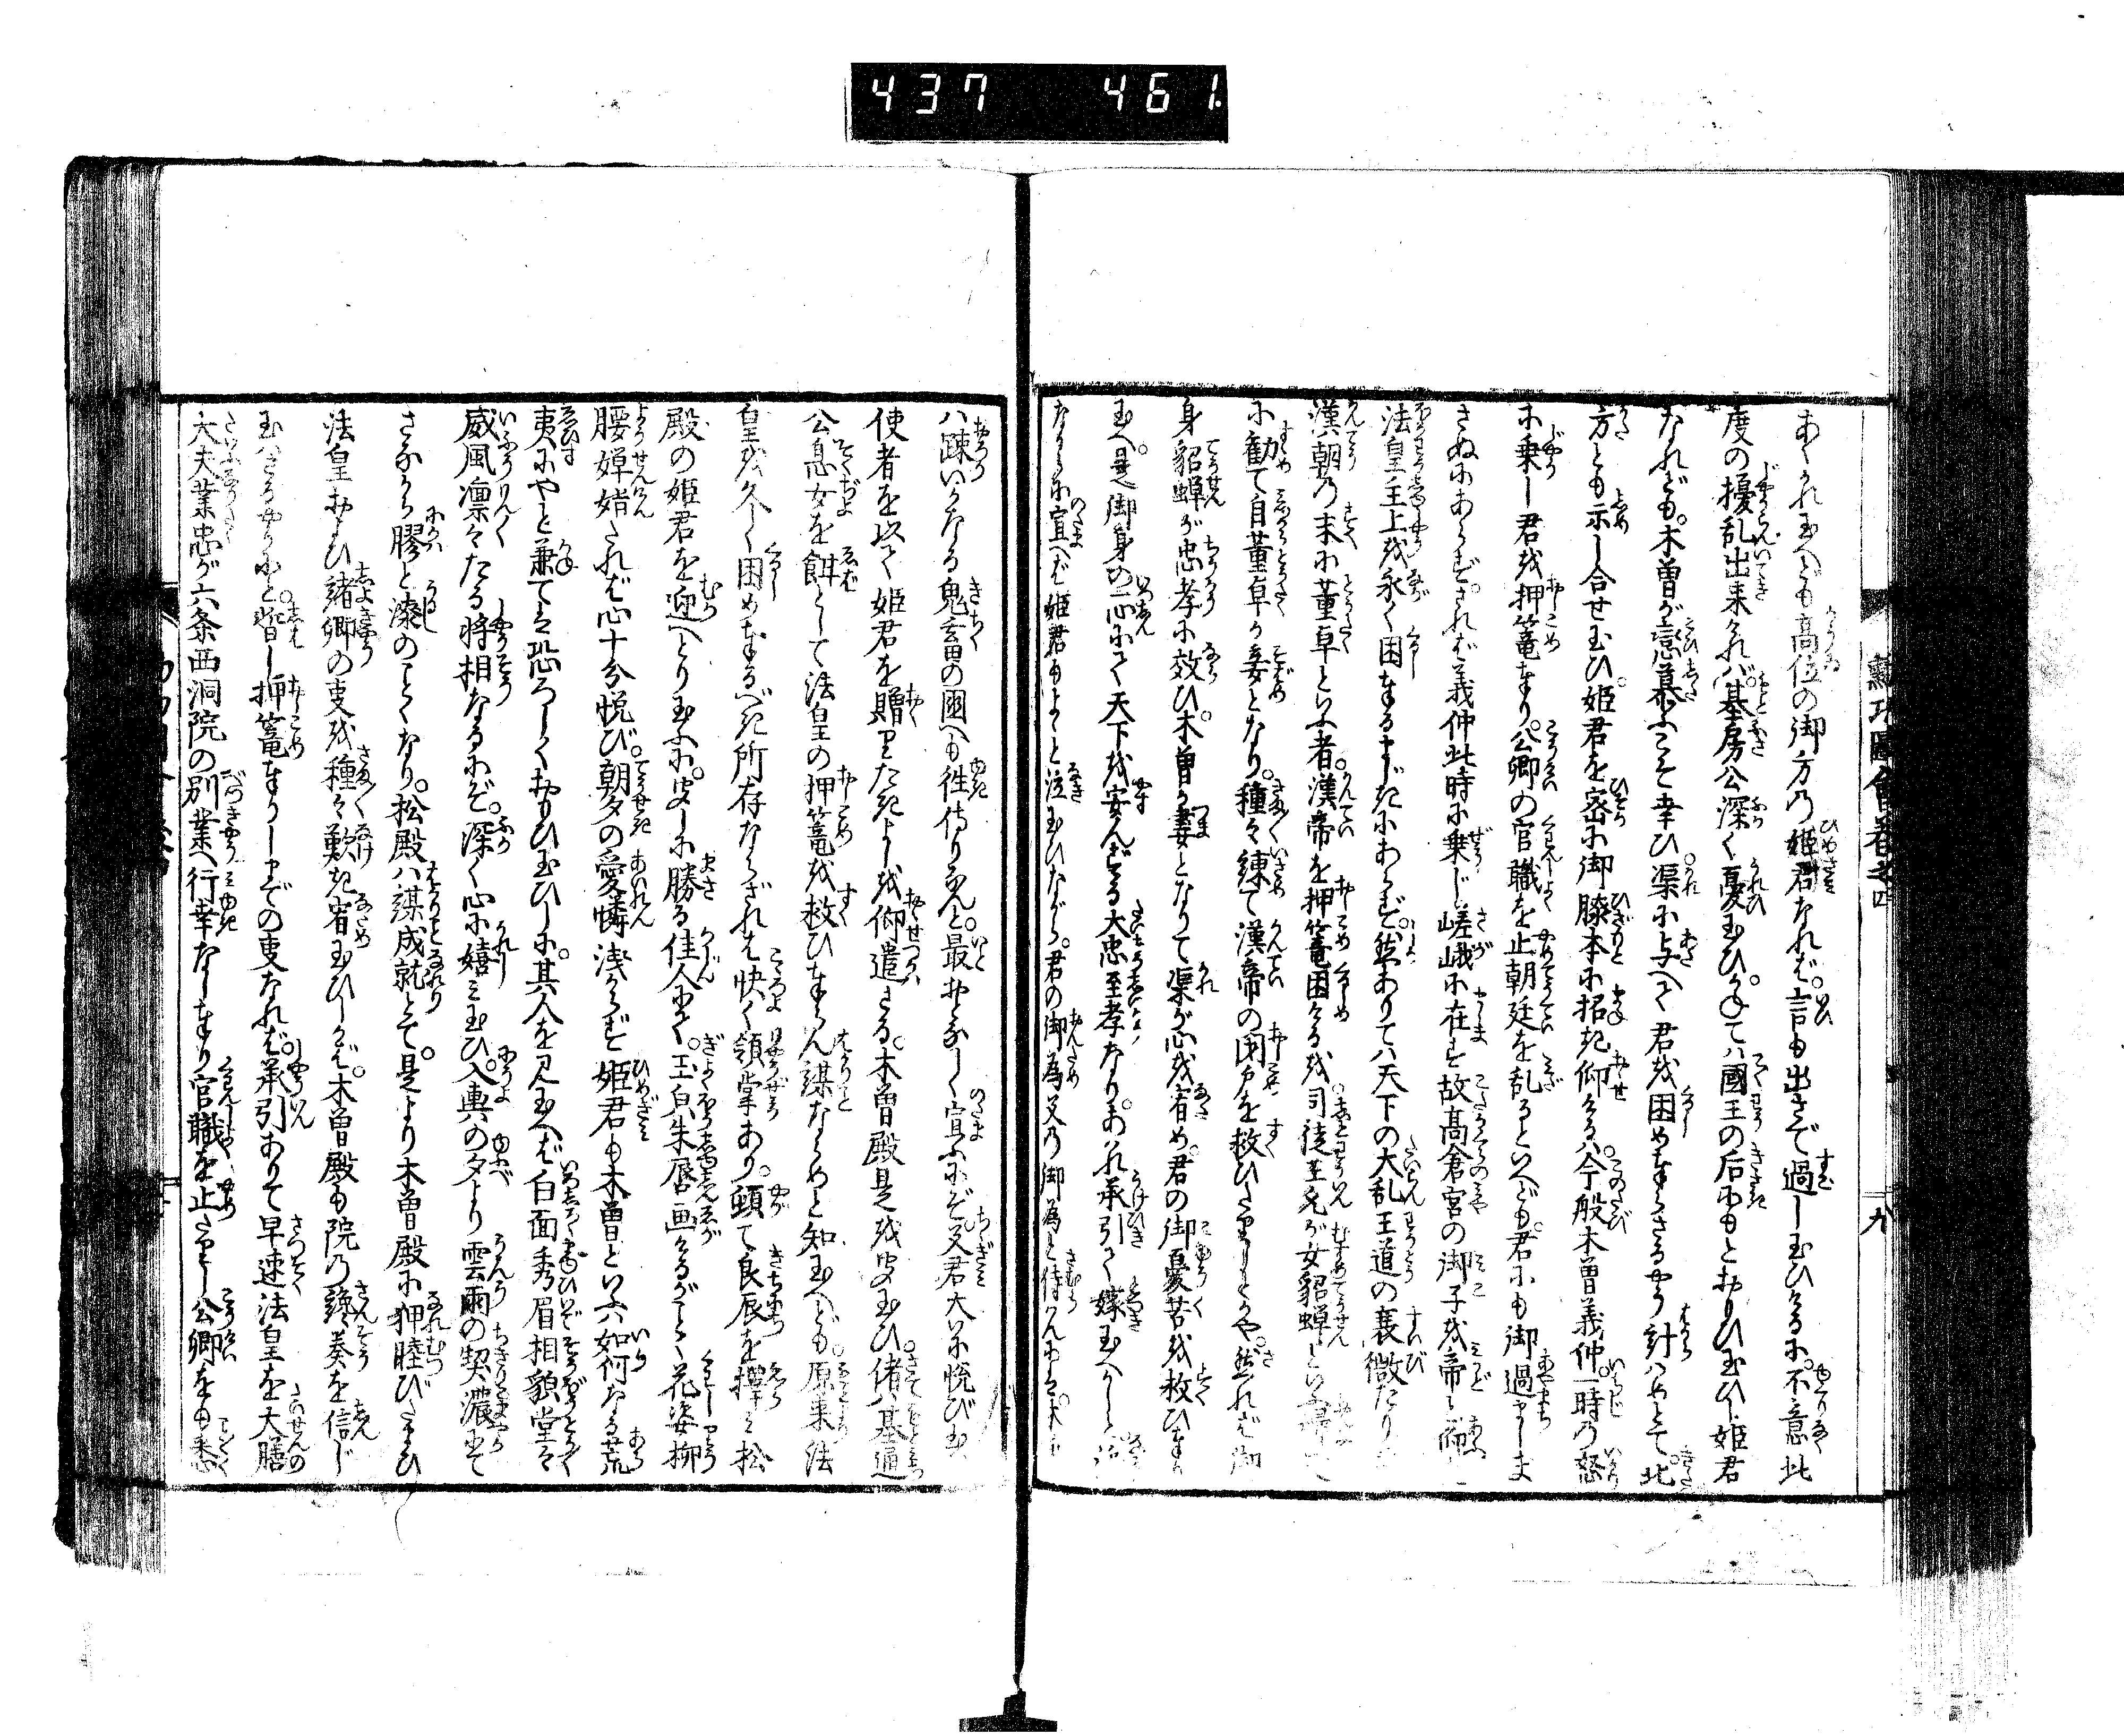 437 461
勲功圖會巻之四
九
あくがれ玉へども高位の御方乃姫君なれば。言も出さで過し玉ひけるに。不意此
度の擾乱出来ければ。基房公深く憂玉ひ。かねては國王の后にもとおもひ玉ひし姫君
なれども。木曽が戀慕ふこそ幸ひ渠に与へて君を困め奉らざるやう計はめとて。北
方とも示し合せ玉ひ。姫君を密に御膝本に招き仰けるは。今般木曽義仲。一時乃怒
に乗し君を押篭奉り。公卿の官職を止朝廷を乱るといへども。君にも御過ましま
さぬにあらず。されば義仲此時に乗じ嵯峨に在す故高倉宮の御子を帝と
法皇主上を永く困奉るまじきにあらず。然ありては天下の大乱王道の衰微たり
漢朝乃末に董卓といふ者。漢帝を押篭困けるを。司徒王允が女貂蝉といふ
に勧て自董卓が妾となり。種々練て漢帝の閉戸を救ひたりしとかや。然れば御
身貂蝉が忠孝に效ひ。木曽が妻となりて渠が心を宥め。君の御憂苦を救ひ奉り
玉へ。是御身の一心にて天下を安んずる大忠至孝なり。あはれ承引て嫁玉へかしと
なり宣へば姫君もよゝと泣玉ひながら。君の御為父乃御為と侍らんには。
ハ疎いかなる鬼畜の國へも徃侍りなんと。最おとなしく宣ふにぞ。父君大いに悦び玉
使者を以て姫君を贈りたきよしを仰遣さる。木曽殿是を聞玉ひ。偖ハ基通
公息女を餌として法皇の押篭を救ひ奉らん謀ならめと知玉へども。原来法
皇を久しく困め奉るべき所存ならざれば快く領掌あり。頓て良辰を擇み松
殿の姫君を迎へとり玉ふに。聞しに勝る佳人にて。玉皃朱唇画けるがごとく花姿柳
腰嬋娟たれば心十分悦び。朝夕の愛憐浅からず姫君も木曽といふハ如何なる荒
夷にやと兼ては恐ろしくおもひ玉ひしに。其人を見玉へば白面秀眉相貌堂々
威風凛々たる将相なるにぞ。深く心に嬉み玉ひ。入輿の夕より雲雨の契濃にて
さながら膠と漆のごとくなり。松殿ハ謀成就とて。是より木曽殿に狎睦びたまひ
法皇おもひ諸卿の事を種々歎き宥玉ひしかば。木曽殿も院乃讒奏を信じ
玉ハざるやうにと。暫し押篭奉りしまでの事なれば。承引ありて早速法皇を大膳
大夫業忠が六条西洞院の別業へ行幸なし奉り官職を止たりし公卿をも悉